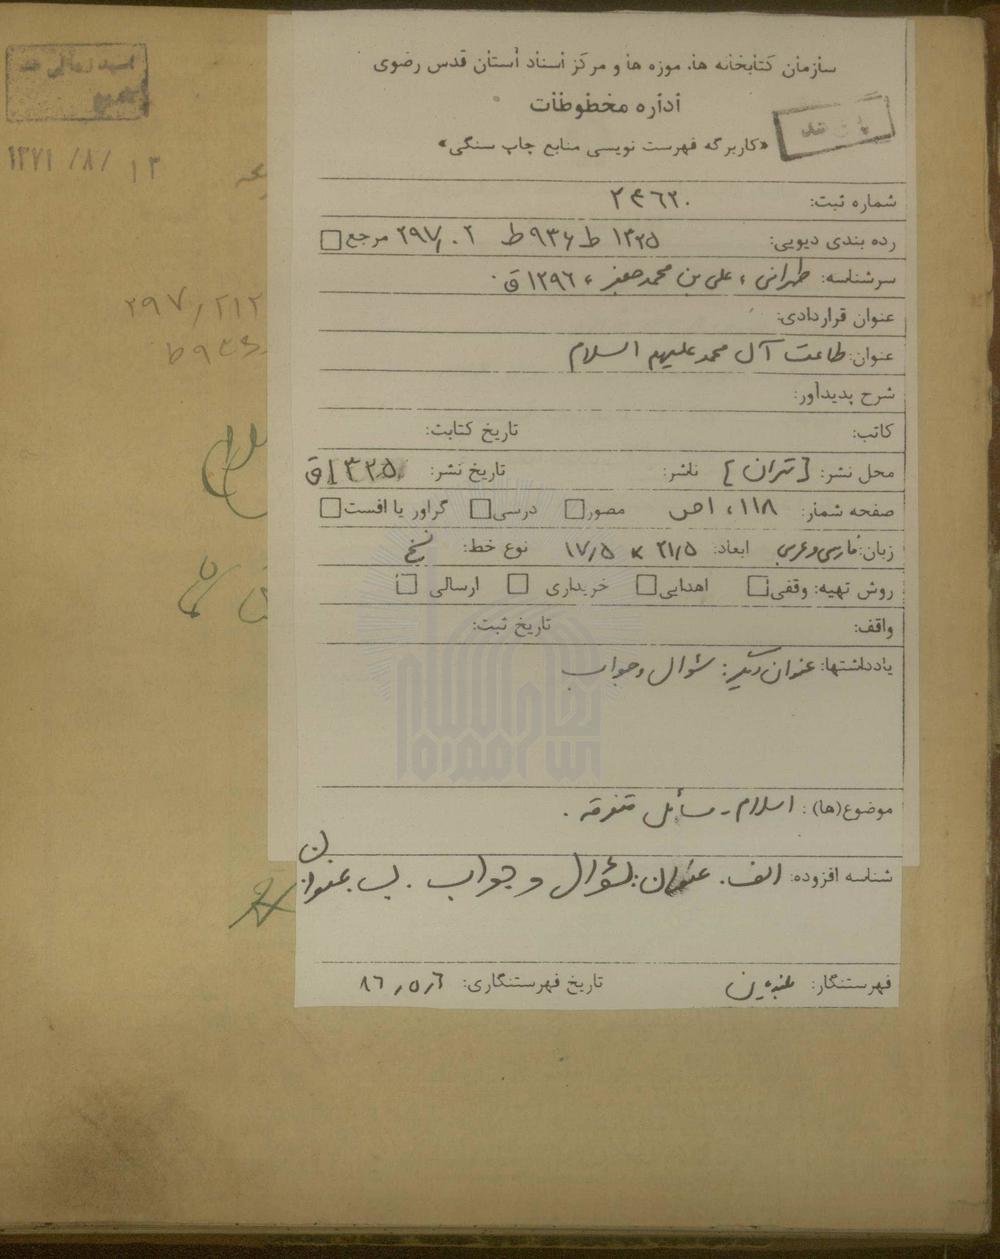 سازمان کتابخانه ها، موزه ها و مرکز اسناد آستان قدس رضوی
اداره مخطوطات
«کاربرگه فهرست نویسی منابع چاپ سنگی»
شماره ثبت: ۲۴۶۲۰
رده بندی دیویی: ۱۳۲۵ ط ۹۳۶ ط ۲۹۷/۰۲ مرجع
سرشناسه: طهرانی، علی بن محمد جعفر، ۱۲۹۶ ق.
عنوان قراردادی:
عنوان: طاعت آل محمد علیهم السلام
شرح پدیدآور:
کاتب: تاریخ کتابت:
محل نشر: [تهران] ناشر: تاریخ نشر: ۱۳۲۵ ق
صفحه شمار: ۱۱۸، ۱ص مصور درسی گراور یا افست
زبان: فارسی و عربی ابعاد: ۲۱/۵ × ۱۷/۵ نوع خط: نسخ
روش تهیه: وقفی اهدایی خریداری ارسالی
واقف: تاریخ ثبت:
یادداشتها: عنوان دیگر: سئوال و جواب
موضوع(ها): اسلام - مسائل متفرقه.
شناسه افزوده: الف. عنوان: سئوال و جواب. ب. عنوان
فهرستنگار: تاریخ فهرستنگاری: ۸۶/۵/۶
۱۲ /۸/ ۱۳۷۱
۲۹۷/۲۱۲